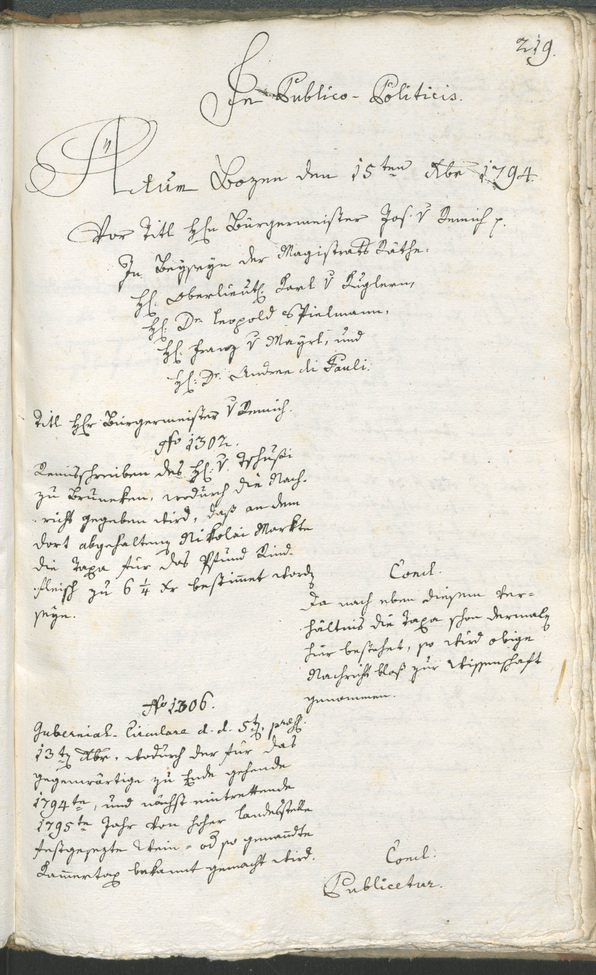 219.
In Publico-Politicis.
Actum Bozen den 15ten Xbr 1794
Vor Titl Hhn Bürgermeister Jos. v Remich p.
In Beyseyn der Magistrats Räthe.
Hl. Oberlieut. Karl v Kuglern,
Hl. Dr. Leopold Spielmann,
Hl. Franz v Mayrl, und
Hl. Dr. Andree di Pauli.
Titl Hhr Bürgermeister v Remich.
No 1302.
schreiben des Hl. v. Tschusi
zu Bruneken, wodurch die Nach-
richt gegeben wird, daß an dem
dort abgehalteng Nikolai Markte
die Taxa für das Pfund Rind-
fleisch zu 6 1/4 Xr bestimmet wordg
seye.
Concl.
Da nach eben diesem Ver-
hältnis die Taxa schon dermalg
hier bestehet, so wird obige
Nachricht bloß zur Wissenschaft
genommen.
No 1306.
Gubernial-Circulare d. d. 5tg, pres.
13tg Xbr, wodurch der für das
gegenwärtige zu Ende gehende
1794te, und nächst eintrettende
1795te Jahr von hoher Landesstelle
festgesezte Wein- od so genañdte
Kam̃ertax bekannt gemacht wird.
Concl.
Publicetur.